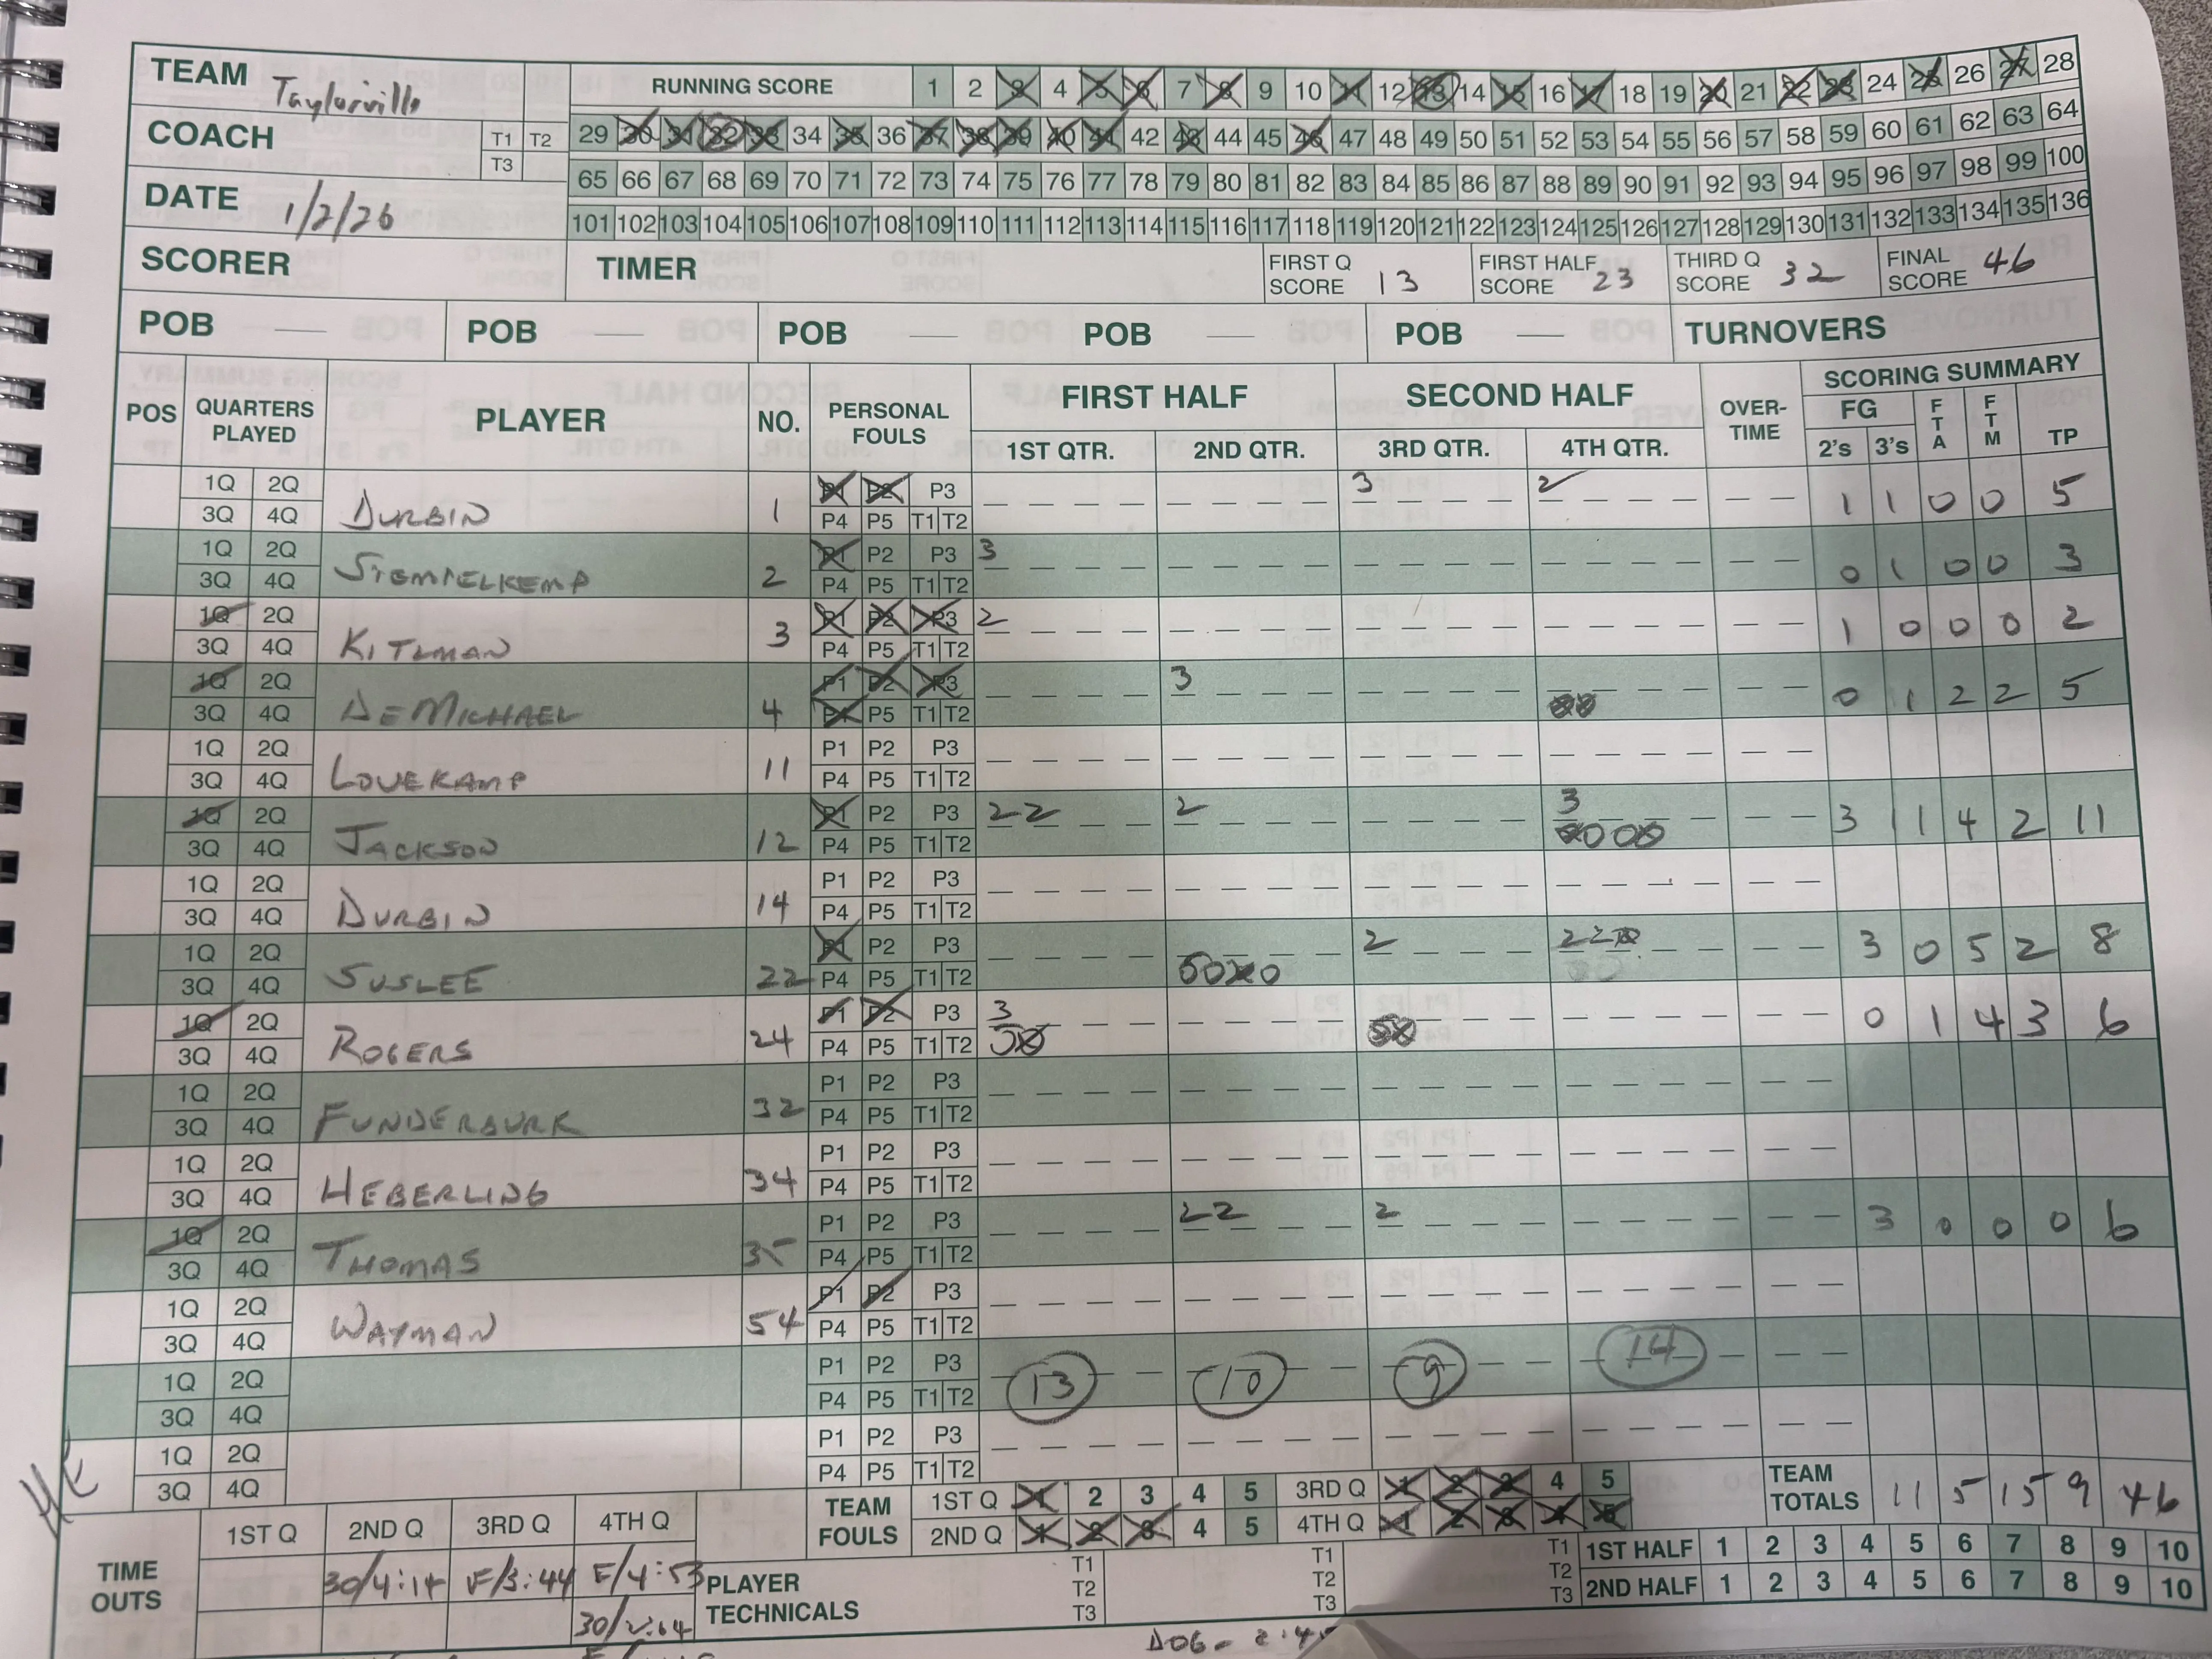 TEAM Taylorville
RUNNING SCORE 1 2 3 4 5 6 7 8 9 10 11 12 13 14 15 16 17 18 19 20 21 22 23 24 25 26 27 28
COACH T1 T2 T3
29 30 31 32 33 34 35 36 37 38 39 40 41 42 43 44 45 46 47 48 49 50 51 52 53 54 55 56 57 58 59 60 61 62 63 64
65 66 67 68 69 70 71 72 73 74 75 76 77 78 79 80 81 82 83 84 85 86 87 88 89 90 91 92 93 94 95 96 97 98 99 100
DATE 1/2/26
101 102 103 104 105 106 107 108 109 110 111 112 113 114 115 116 117 118 119 120 121 122 123 124 125 126 127 128 129 130 131 132 133 134 135 136
SCORER TIMER FIRST Q SCORE 13 FIRST HALF SCORE 23 THIRD Q SCORE 32 FINAL SCORE 46
POB POB POB POB POB TURNOVERS
POS QUARTERS PLAYED PLAYER NO. PERSONAL FOULS FIRST HALF SECOND HALF OVER-TIME SCORING SUMMARY
1ST QTR. 2ND QTR. 3RD QTR. 4TH QTR. FG 2'S 3'S FTA FTM TP
1Q 2Q P1 P2 P3 3 2
3Q 4Q DURBIN 1 P4 P5 T1 T2 1 1 0 0 5
1Q 2Q P1 P2 P3 3
3Q 4Q STEMPELKEMP 2 P4 P5 T1 T2 0 1 0 0 3
1Q 2Q P1 P2 P3 2
3Q 4Q KITLMAN 3 P4 P5 T1 T2 1 0 0 0 2
1Q 2Q P1 P2 P3 3
3Q 4Q DEMICHAEL 4 P4 P5 T1 T2 0 1 2 2 5
1Q 2Q P1 P2 P3
3Q 4Q LOVEKAMP 11 P4 P5 T1 T2
1Q 2Q P1 P2 P3 2 2 2 3
3Q 4Q JACKSON 12 P4 P5 T1 T2 3 1 4 2 11
1Q 2Q P1 P2 P3
3Q 4Q DURBIN 14 P4 P5 T1 T2
1Q 2Q P1 P2 P3 2 2 2
3Q 4Q SUSLEE 22 P4 P5 T1 T2 3 0 5 2 8
1Q 2Q P1 P2 P3 3
3Q 4Q ROGERS 24 P4 P5 T1 T2 0 1 4 3 6
1Q 2Q P1 P2 P3
3Q 4Q FUNDERBURK 32 P4 P5 T1 T2
1Q 2Q P1 P2 P3
3Q 4Q HEBERLING 34 P4 P5 T1 T2
1Q 2Q P1 P2 P3 2 2 2
3Q 4Q THOMAS 35 P4 P5 T1 T2 3 0 0 0 6
1Q 2Q P1 P2 P3
3Q 4Q WAYMAN 54 P4 P5 T1 T2
1Q 2Q P1 P2 P3 13 10 9 14
3Q 4Q P4 P5 T1 T2
1Q 2Q P1 P2 P3
3Q 4Q P4 P5 T1 T2
TEAM FOULS 1ST Q 1 2 3 4 5 3RD Q 1 2 3 4 5 TEAM TOTALS 11 5 15 9 46
2ND Q 1 2 3 4 5 4TH Q 1 2 3 4 5
TIME OUTS 1ST Q 2ND Q 3RD Q 4TH Q
30/4:14 F/3:44 F/4:53
PLAYER TECHNICALS T1 T2 T3 T1 T2 T3 T1 T2 T3
1ST HALF 1 2 3 4 5 6 7 8 9 10
2ND HALF 1 2 3 4 5 6 7 8 9 10